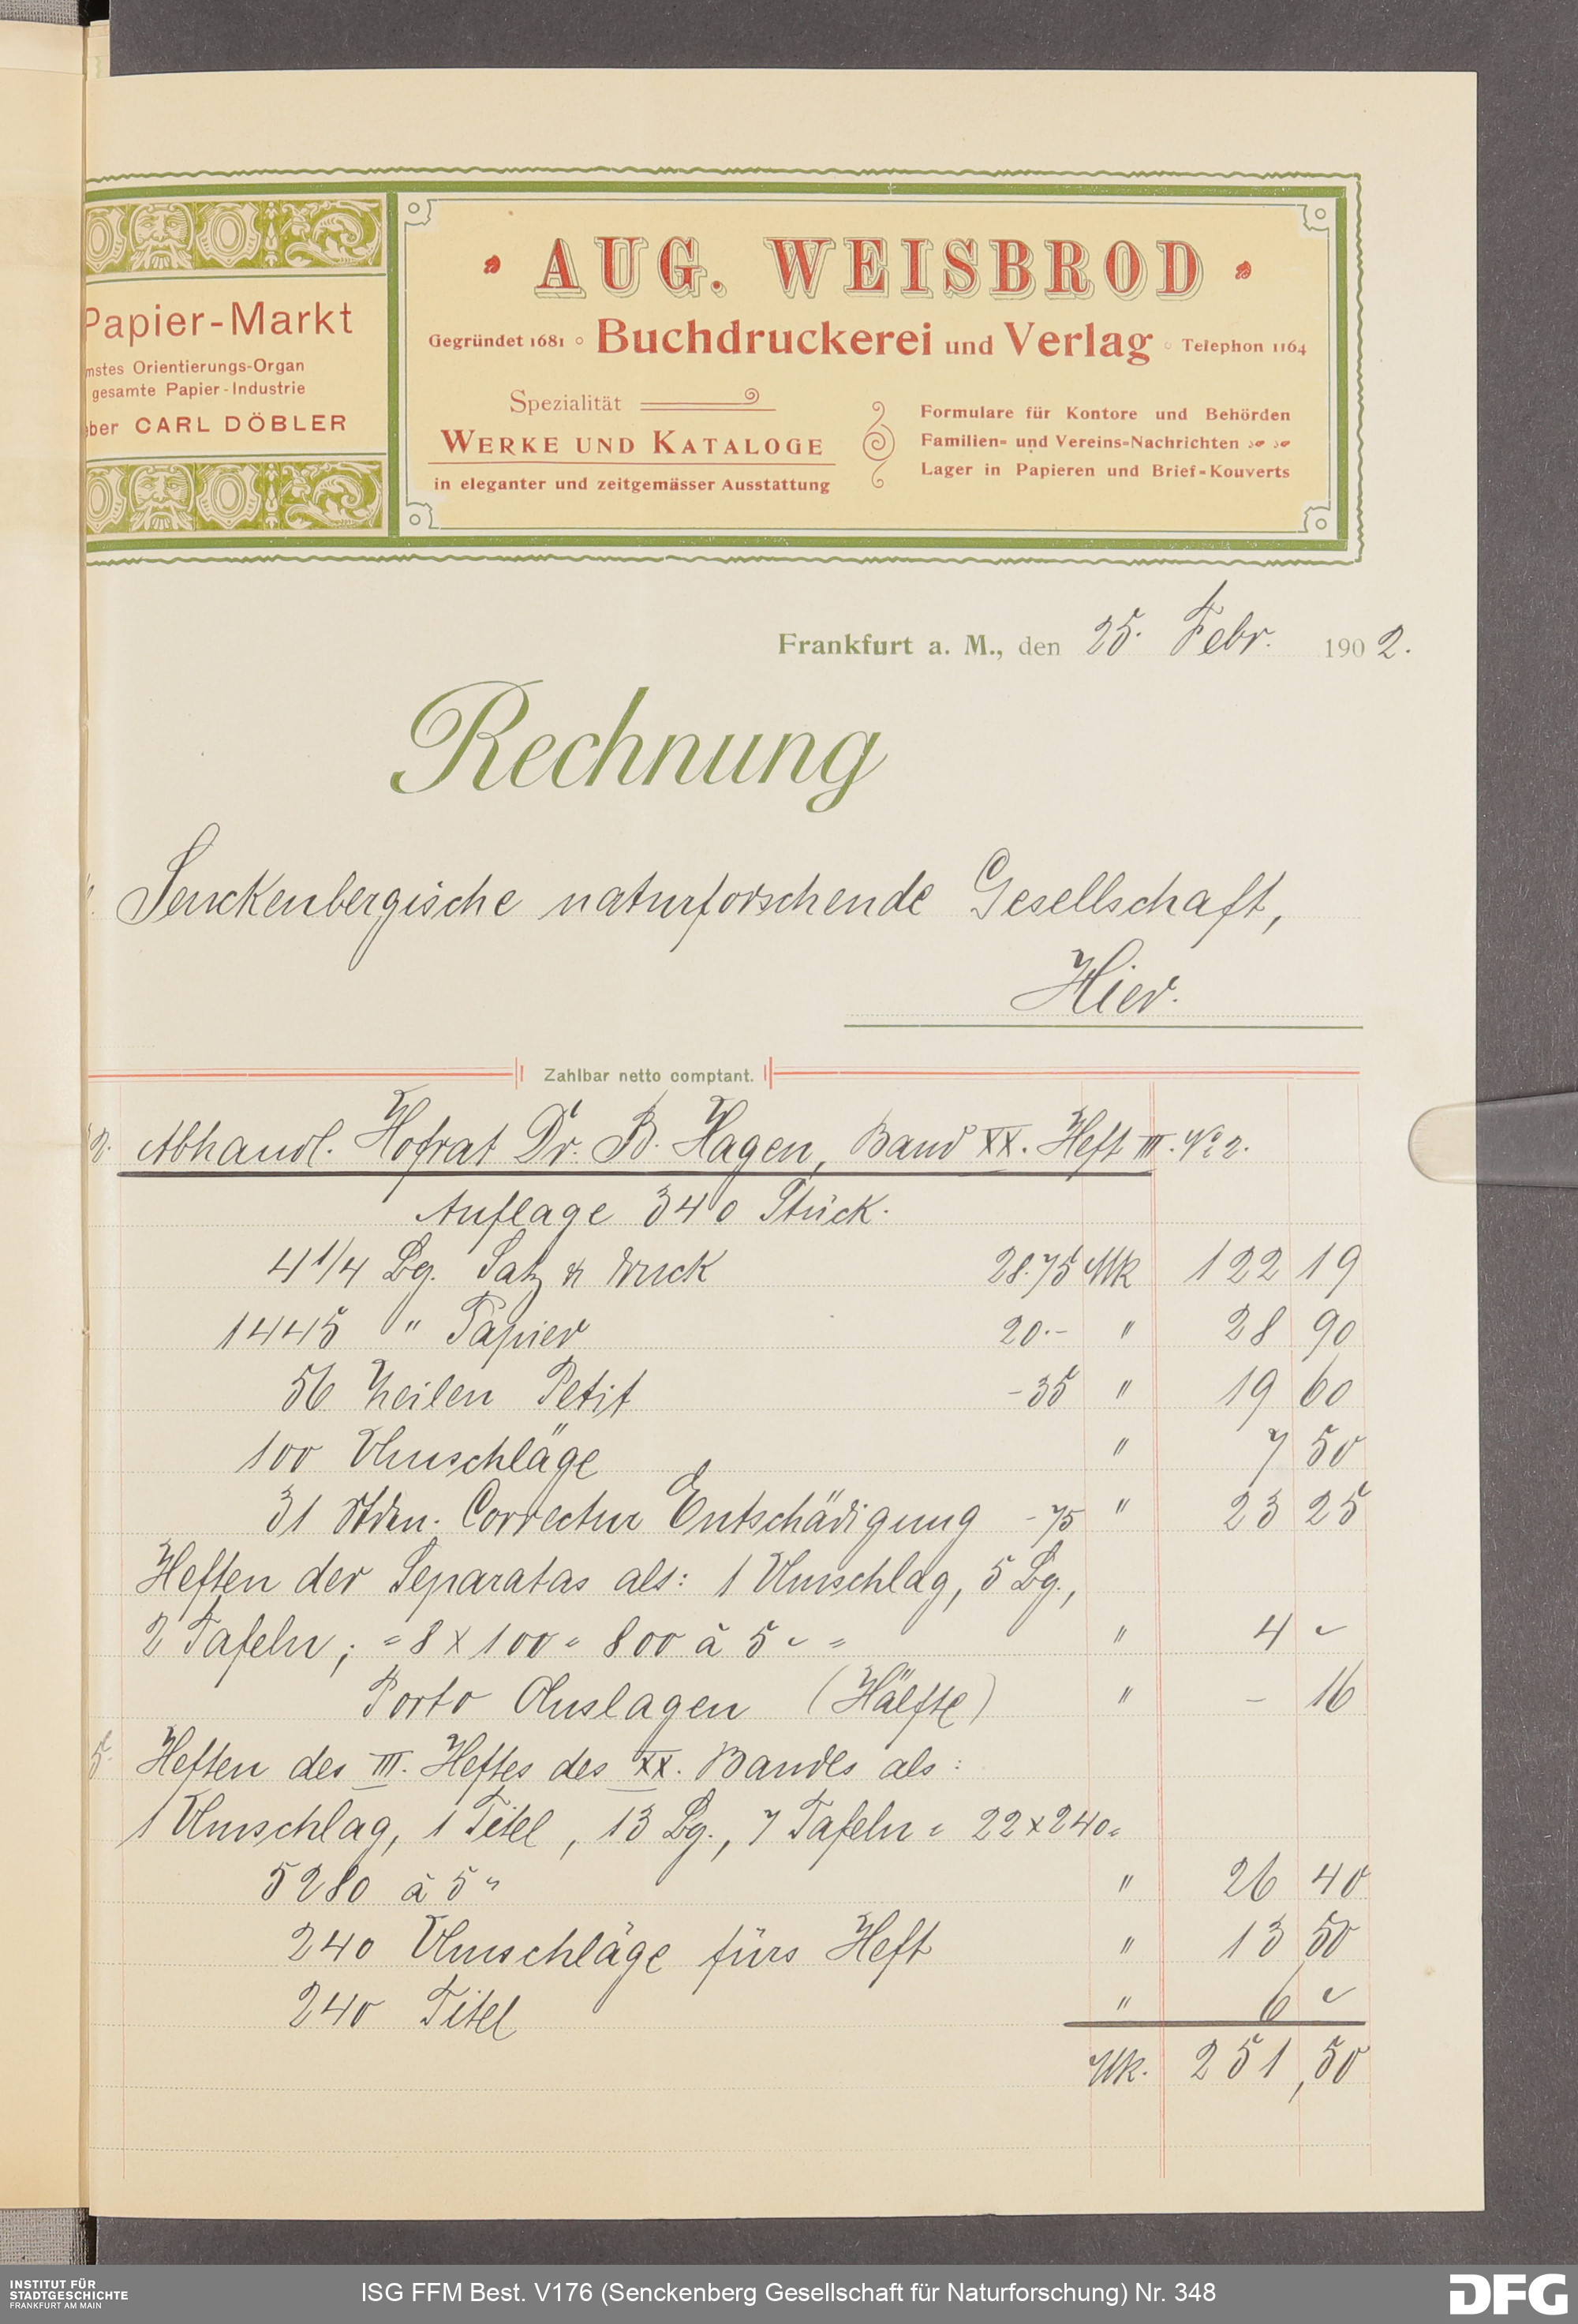 AUG. WEISBROD
Gegründet 1681 ◦ Buchdruckerei und Verlag ◦ Telephon 1164
Spezialität
WERKE UND KATALOGE
in eleganter und zeitgemässer Ausstattung
Formulare für Kontore und Behörden
Familien- und Vereins-Nachrichten
Lager in Papieren und Brief-Kouverts
Papier-Markt
nstes Orientierungs-Organ
gesamte Papier-Industrie
ber CARL DÖBLER
Frankfurt a. M., den 25. Febr. 1902.
Rechnung
Senckenbergische naturforschende Gesellschaft,
Hier.
Zahlbar netto comptant.
Abhandl. Hofrat Dr. B. Hagen, Band XX. Heft III. No 2.
Auflage 340 Stück.
4 1/4 Bg. Satz & Druck 28.75 Mk 122 19
1445 " Papier 20.- " 28 90
56 Zeilen Petit -35 " 19 60
100 Umschläge " 7 50
31 Stdn. Correctur Entschädigung -75 " 23 25
Heften der Separatas als: 1 Umschlag, 5 Bg.,
2 Tafeln; = 8 x 100 = 800 à 5 - = " 4 -
Porto Auslagen (Hälfte) " - 16
5. Heften des III. Heftes des XX. Bandes als:
1 Umschlag, 1 Titel, 13 Bg., 7 Tafeln = 22 x 240 =
5280 à 5 " " 26 40
240 Umschläge fürs Heft " 13 50
240 Titel " 6 -
Mk. 251,50
INSTITUT FÜR
STADTGESCHICHTE
FRANKFURT AM MAIN
ISG FFM Best. V176 (Senckenberg Gesellschaft für Naturforschung) Nr. 348
DFG